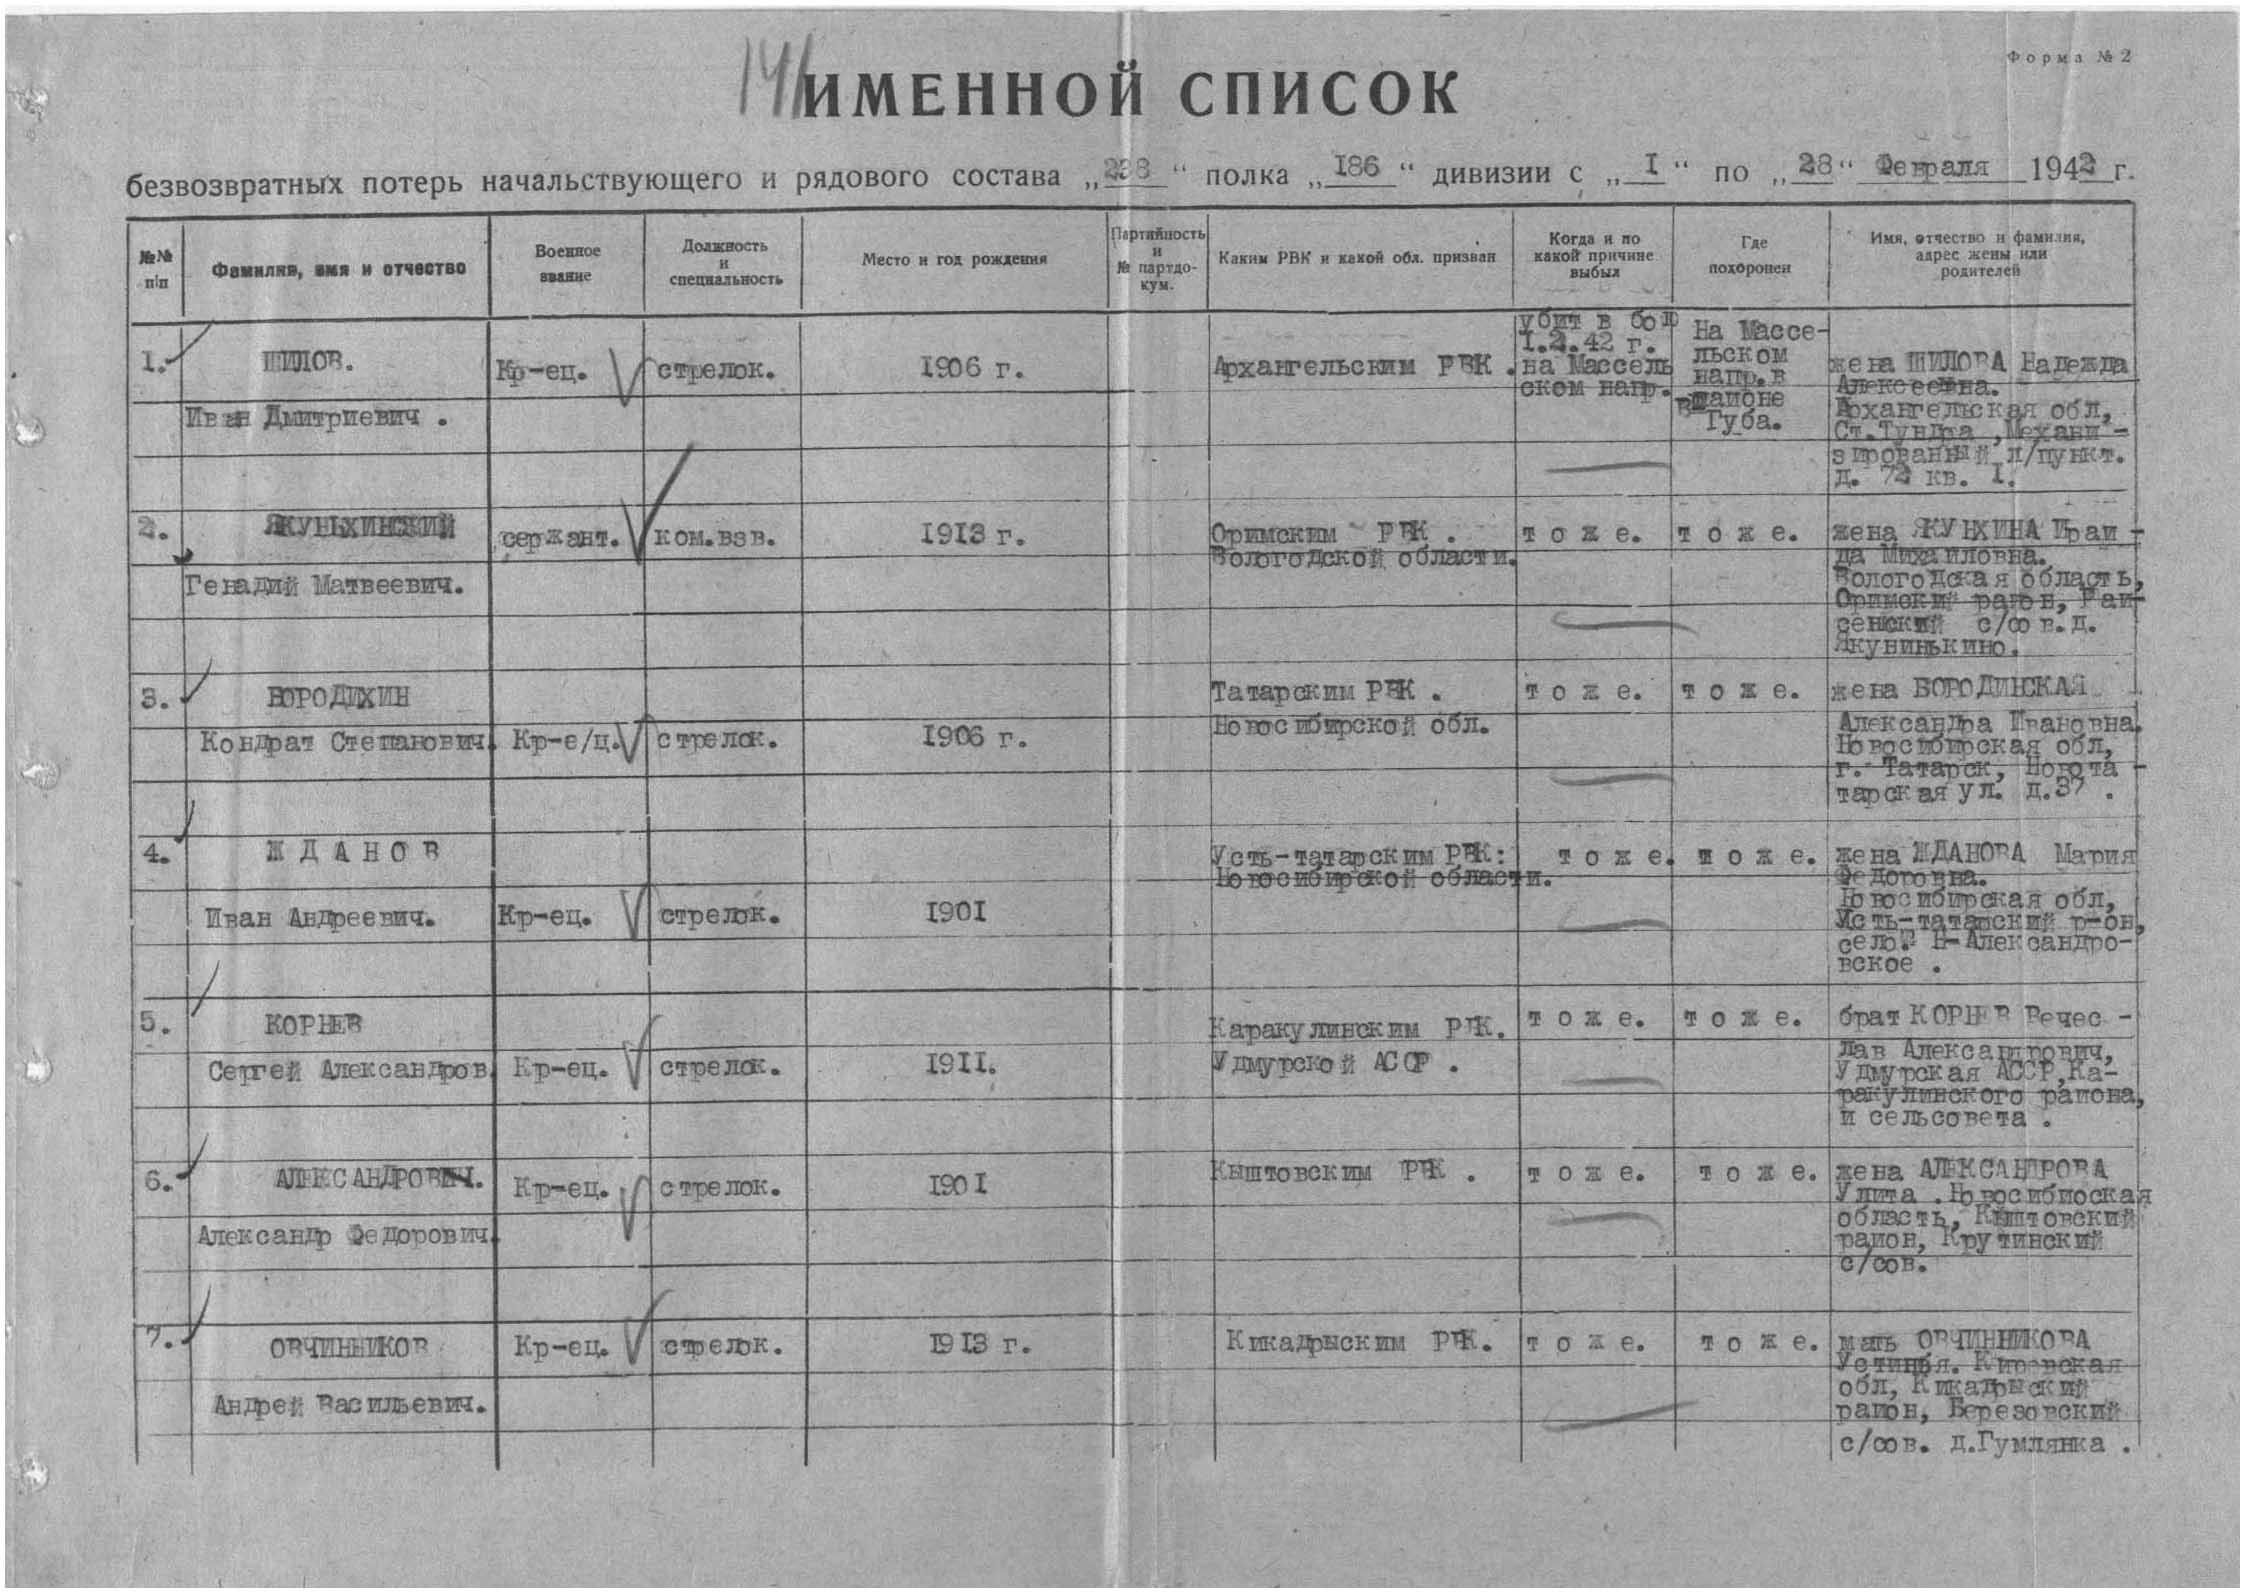 Форма № 2
141
ИМЕННОЙ СПИСОК
безвозвратных потерь начальствующего и рядового состава „238“ полка „186“ дивизии с „I“ по „28“ Февраля 1942 г.
№№ п/п
Фамилия, имя и отчество
Военное звание
Должность и специальность
Место и год рождения
Партийность и № партдо-кум.
Каким РВК и какой обл. призван
Когда и по какой причине выбыл
Где похоронен
Имя, отчество и фамилия, адрес жены или родителей
1.
ШИЛОВ.
Иван Дмитриевич .
Кр-ец.
стрелок.
1906 г.
Архангельским РВК .
убит в бою
I.2.42 г.
на Массель
ском напр.
На Массе-
льском
напр.в
районе
Губа.
жена ШИЛОВА Надежда
Алексеевна.
Архангельская обл,
Ст.Тундра ,Механи -
зированный л/пункт.
д. 72 кв. I.
2.
ЯКУНЬХИНСКИЙ
Генадий Матвеевич.
сержант.
ком.взв.
1913 г.
Оримским РВК .
Вологодской области.
т о ж е.
т о ж е.
жена ЯКУНХИНА Ираи -
да Михаиловна.
Вологодская область,
Оримский район, Раи-
сенский с/сов.д.
Якунинькино.
3.
БОРОДИХИН
Кондрат Степанович.
Кр-е/ц.
стрелок.
1906 г.
Татарским РВК .
Новосибирской обл.
т о ж е.
т о ж е.
жена БОРОДИНСКАЯ
Александра Ивановна.
Новосибирская обл,
г. Татарск, Новота -
тарская ул. д.37 .
4.
Ж Д А Н О В
Иван Андреевич.
Кр-ец.
стрелок.
1901
Усть-татарским РВК:
Новосибирской области.
т о ж е.
т о ж е.
жена ЖДАНОВА Мария
Федоровна.
Новосибирская обл,
Усть-татарский р-он,
село. Н-Александро-
вское .
5.
КОРНЕВ
Сергей Александров.
Кр-ец.
стрелок.
1911.
Каракулинским РВК.
Удмурской АССР .
т о ж е.
т о ж е.
брат КОРНЕВ Вечес -
лав Александрович,
Удмурская АССР,Ка-
ракулинского района,
и сельсовета .
6.
АЛЕКСАНДРОВИЧ.
Александр Федорович.
Кр-ец.
стрелок.
1901
Кыштовским РВК .
т о ж е.
т о ж е.
жена АЛЕКСАНДРОВА
Улита .Новосибиоская
область, Кыштовский
район, Крутинский
с/сов.
7.
ОВЧИННИКОВ
Андрей Васильевич.
Кр-ец.
стрелок.
1913 г.
Кикадрыским РВК.
т о ж е.
т о ж е.
мать ОВЧИННИКОВА
Устинья. Кировская
обл, Кикадрыский
район, Березовский
с/сов. д.Гумлянка .